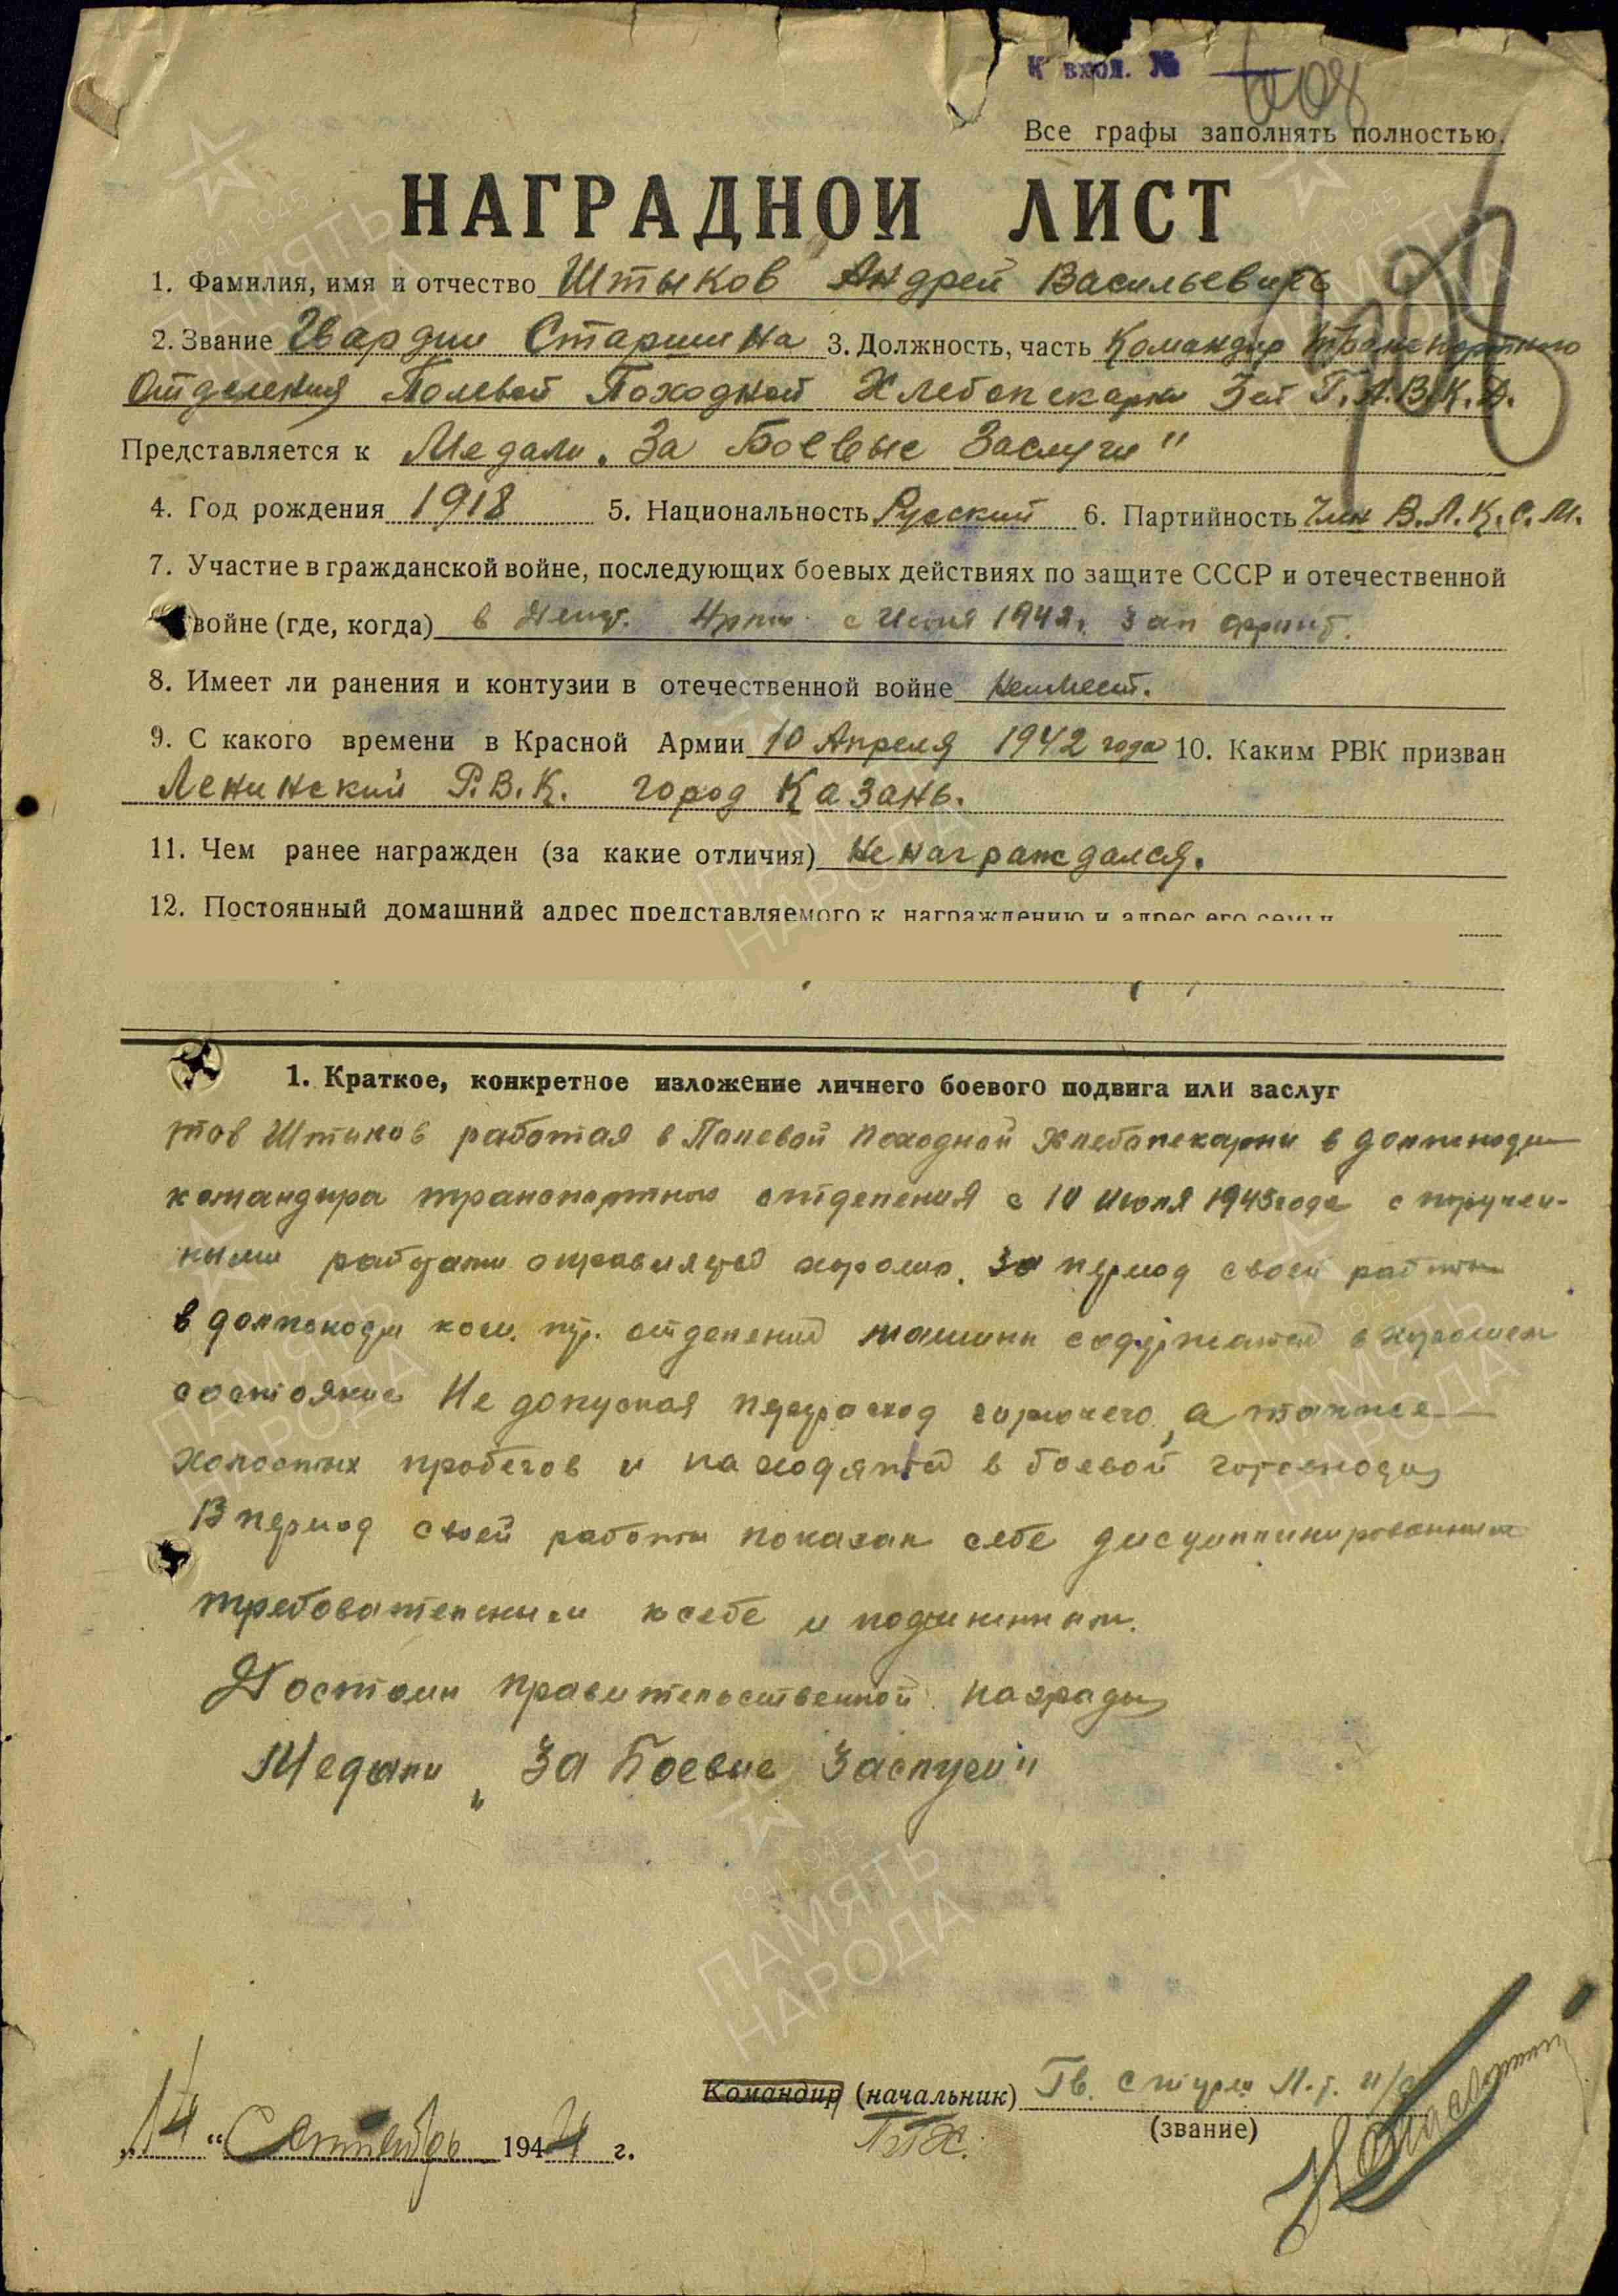 К вход. №
608
Все графы заполнять полностью.
НАГРАДНОЙ ЛИСТ
1. Фамилия, имя и отчество Штыков Андрей Васильевичь
2. Звание Гвардии Старшина 3. Должность, часть Командир транспортного
Отделения Полевой Походной Хлебопекарни 3ей Г.А.В.К.Д.
Представляется к Медали „За Боевые Заслуги"
4. Год рождения 1918 5. Национальность Русский 6. Партийность Член В.Л.К.С.М.
7. Участие в гражданской войне, последующих боевых действиях по защите СССР и отечественной
войне (где, когда) в с Июня 1942г. Зап фронт.
8. Имеет ли ранения и контузии в отечественной войне Неимеет.
9. С какого времени в Красной Армии 10 Апреля 1942 года 10. Каким РВК призван
Ленинский Р.В.К. город Казань.
11. Чем ранее награжден (за какие отличия) Ненаграждался.
12. Постоянный домашний адрес представляемого к награждению и адрес его семьи
1. Краткое, конкретное изложение личнего боевого подвига или заслуг
тов Штыков работая в Полевой походной Хлебопекарни в должности
командира транспортного отделения с 10 июля 1943 года с поручен-
ными работами справляется хорошо. За период своей работы
в должности ком. тр. отделений машины содержатся в хорошем
состояние Не допуская перерасход горючего, а также
холостых пробегов и находятся в боевой готовности
В период своей работы показал себе дисциплинированным
требовательным к себе и подчиненным.
Достоин правительственной награды
Медали „За Боевые Заслуги"
„14" Сентябрь 1944 г.
Командир (начальник) Гв. И.т. и/с
ППХ.
(звание)
ПАМЯТЬ
НАРОДА
1941 1945